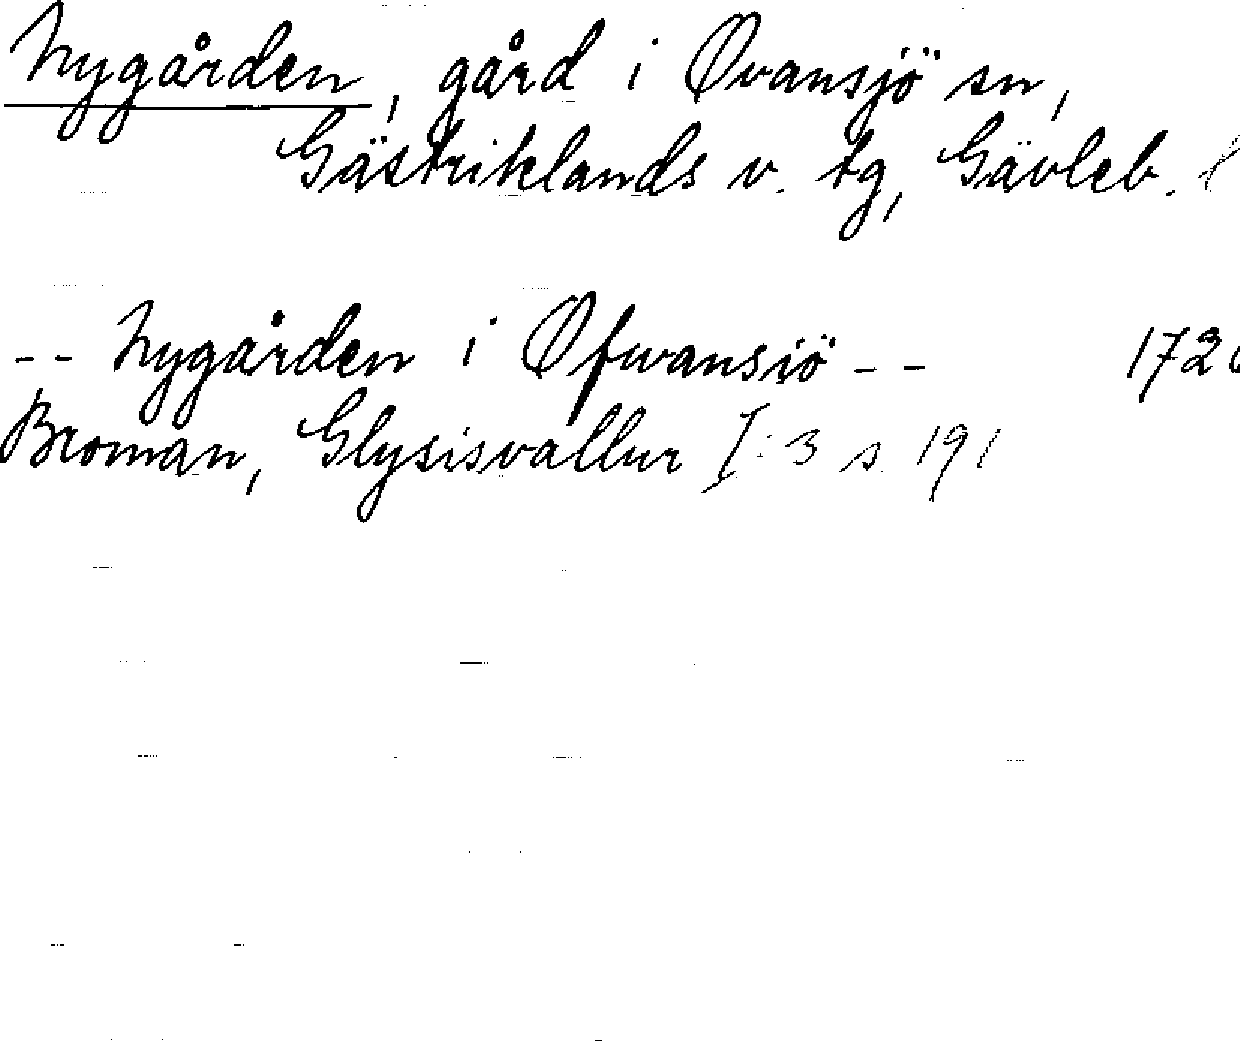 Nygården, gård i Ovansjö sn,
Gästriklands v. tg, Gävleb. l
-- Nygården i Ofwansiö --
Broman, Glysisvallur I:3 s. 191